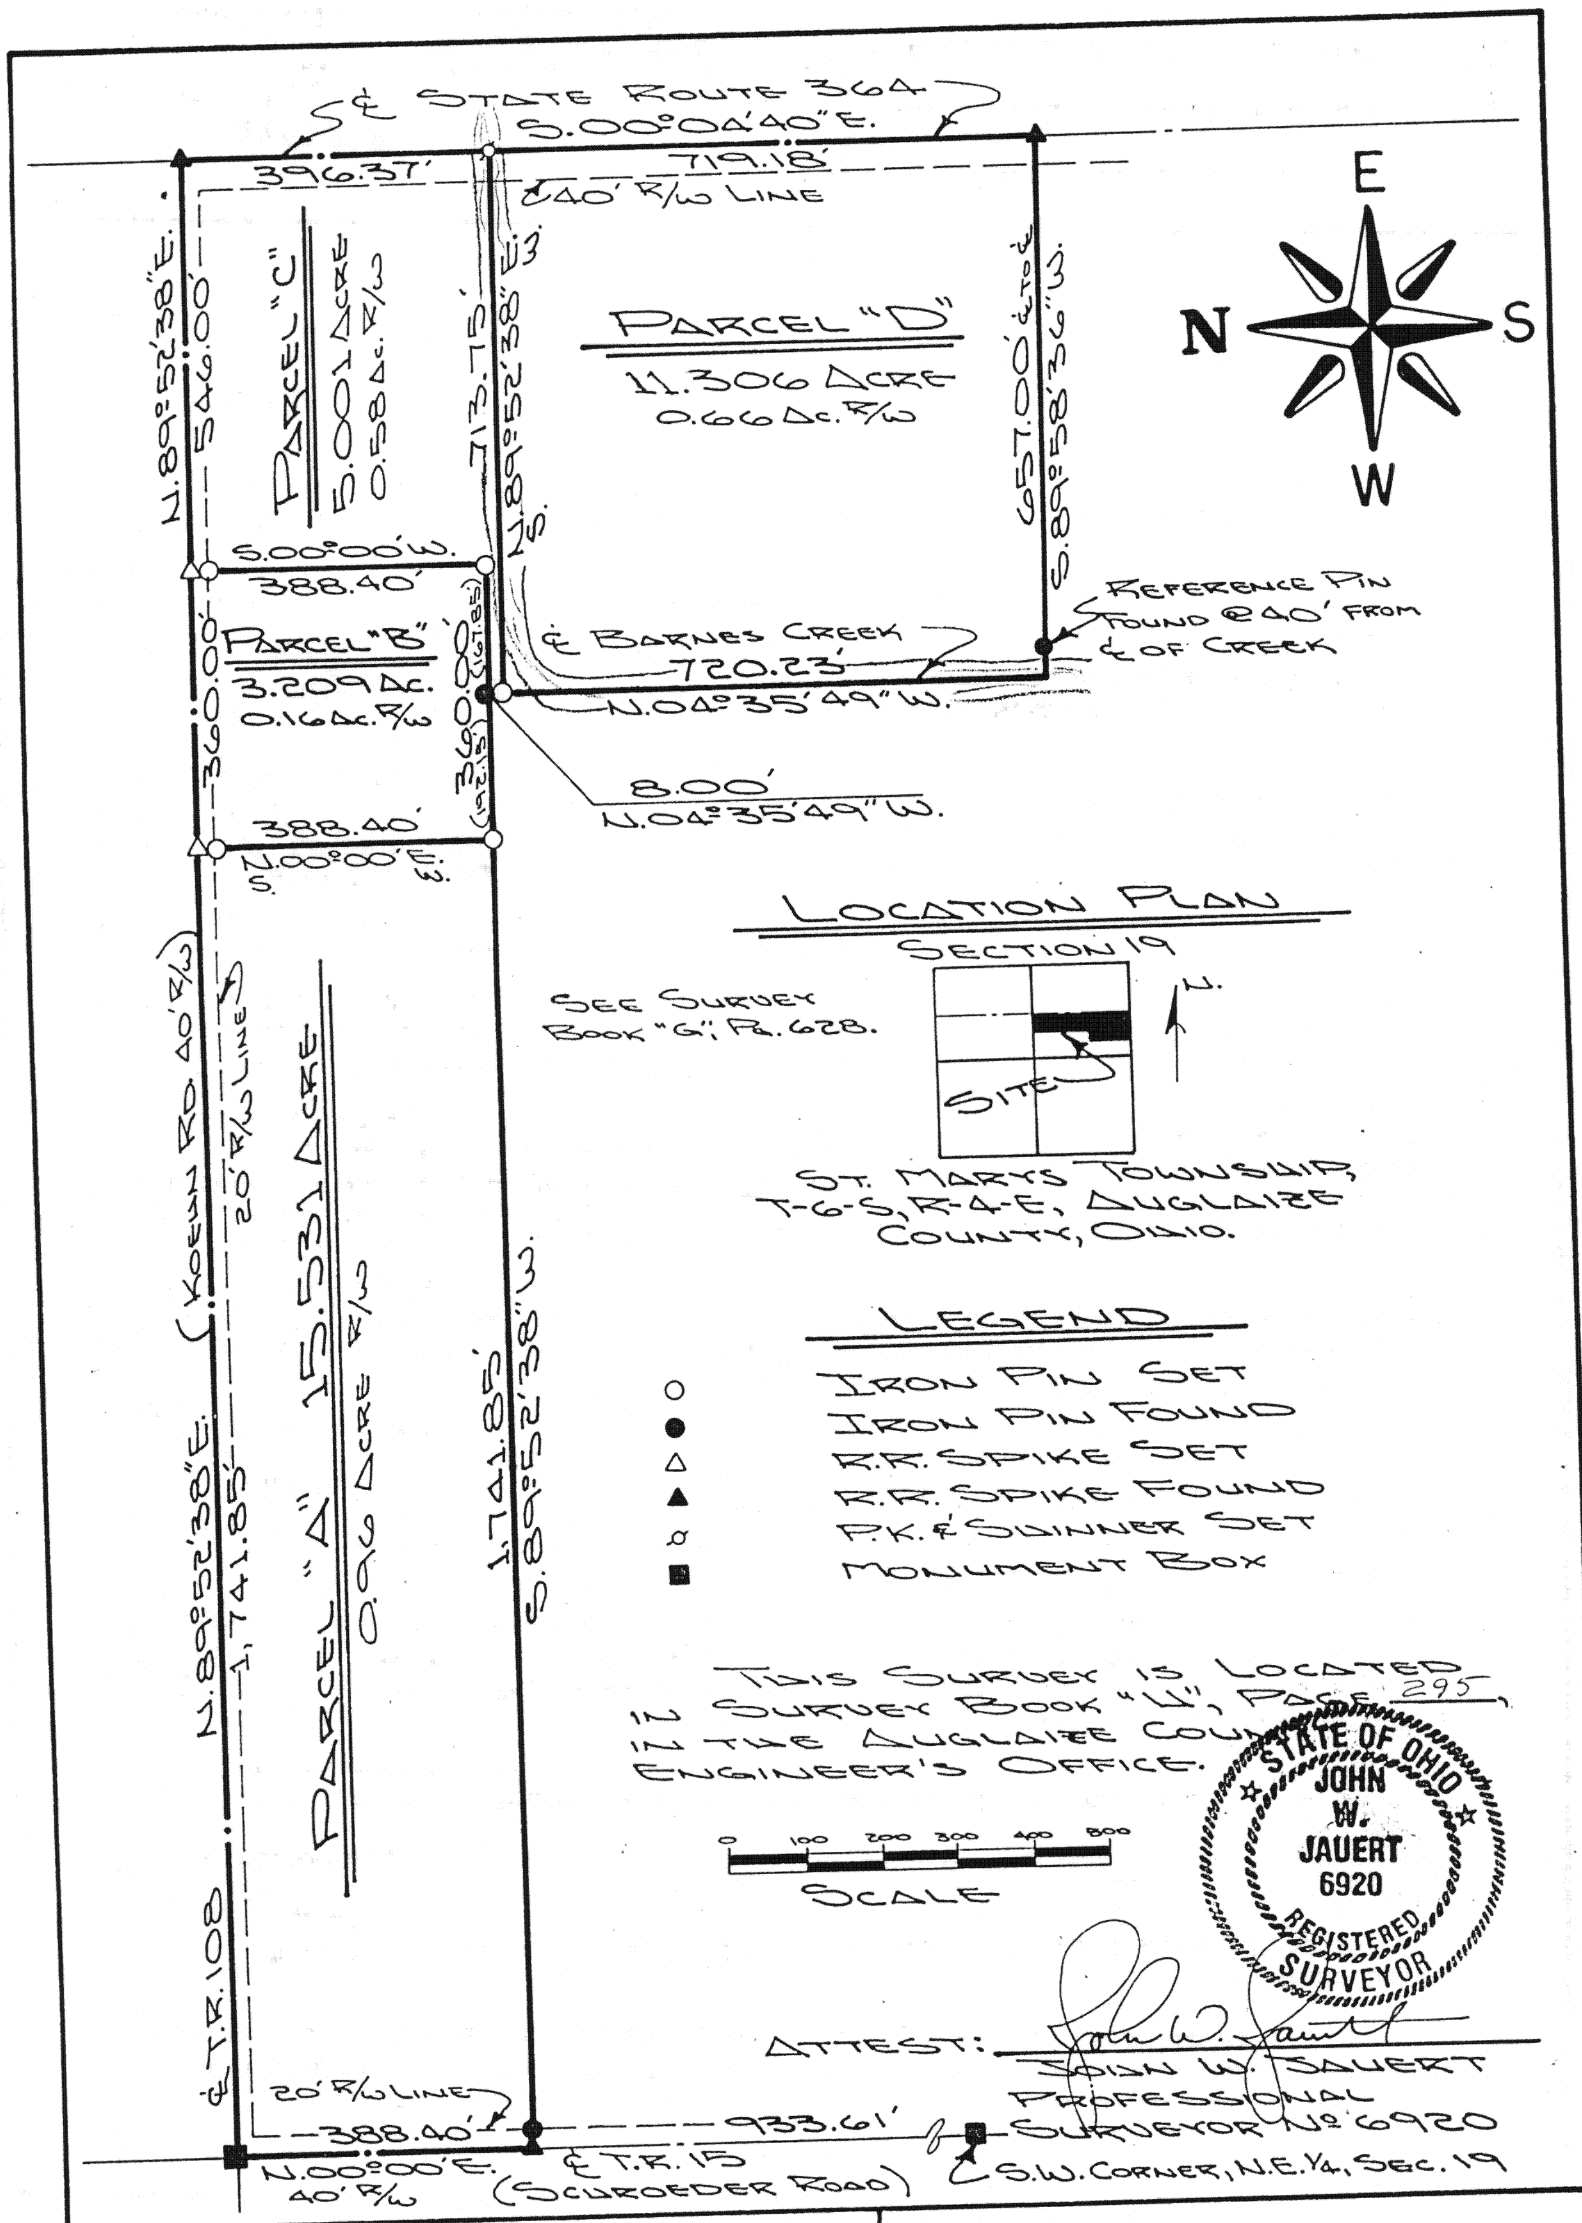 ℄ STATE ROUTE 364
S.00°04'40"E.
396.37'
719.18'
40' R/W LINE
N.89°52'38"E.
546.00'
PARCEL "C"
5.001 ACRE
0.58 AC. R/W
713.75'
N.89°52'38"E.
S. W.
PARCEL "D"
11.306 ACRE
0.66 AC. R/W
657.00' ℄ TO ℄
S.89°58'36"W.
E
N
S
W
S.00°00'W.
388.40'
PARCEL "B"
3.209 AC.
0.16 AC. R/W
360.00'
360.00'
(167.85)
(192.15)
℄ BARNES CREEK
720.23'
N.04°35'49"W.
REFERENCE PIN
FOUND @ 40' FROM
℄ OF CREEK
8.00'
N.04°35'49"W.
388.40'
N.00°00'E.
S. W.
LOCATION PLAN
SECTION 19
SEE SURVEY
BOOK "G", PG. 628.
N.
SITE
ST. MARYS TOWNSHIP,
T-6-S, R-4-E, AUGLAIZE
COUNTY, OHIO.
(KOEHN RD. 40' R/W)
20' R/W LINE
PARCEL "A" 15.531 ACRE
0.96 ACRE R/W
N.89°52'38"E.
1,741.85'
1,741.85'
S.89°52'38"W.
℄ T.R. 108
LEGEND
IRON PIN SET
IRON PIN FOUND
R.R. SPIKE SET
R.R. SPIKE FOUND
P.K. & SHINNER SET
MONUMENT BOX
THIS SURVEY IS LOCATED
IN SURVEY BOOK "H", PAGE 295,
IN THE AUGLAIZE COUNTY
ENGINEER'S OFFICE.
STATE OF OHIO
JOHN
W.
JAUERT
6920
REGISTERED
SURVEYOR
0 100 200 300 400 500
SCALE
ATTEST: John W. Jauert
JOHN W. JAUERT
PROFESSIONAL
SURVEYOR Nº 6920
20' R/W LINE
388.40'
933.61'
N.00°00'E.
40' R/W
℄ T.R. 15
(SCHROEDER ROAD)
S.W. CORNER, N.E. 1/4, SEC. 19